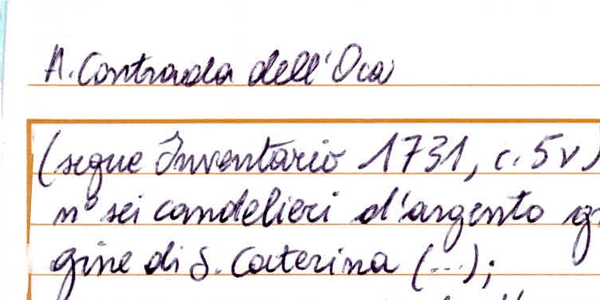 A. Contrada dell'Oca
(segue Inventario 1731, c. 5v)
n° sei candelieri d'argento
gine di S. Caterina (...);